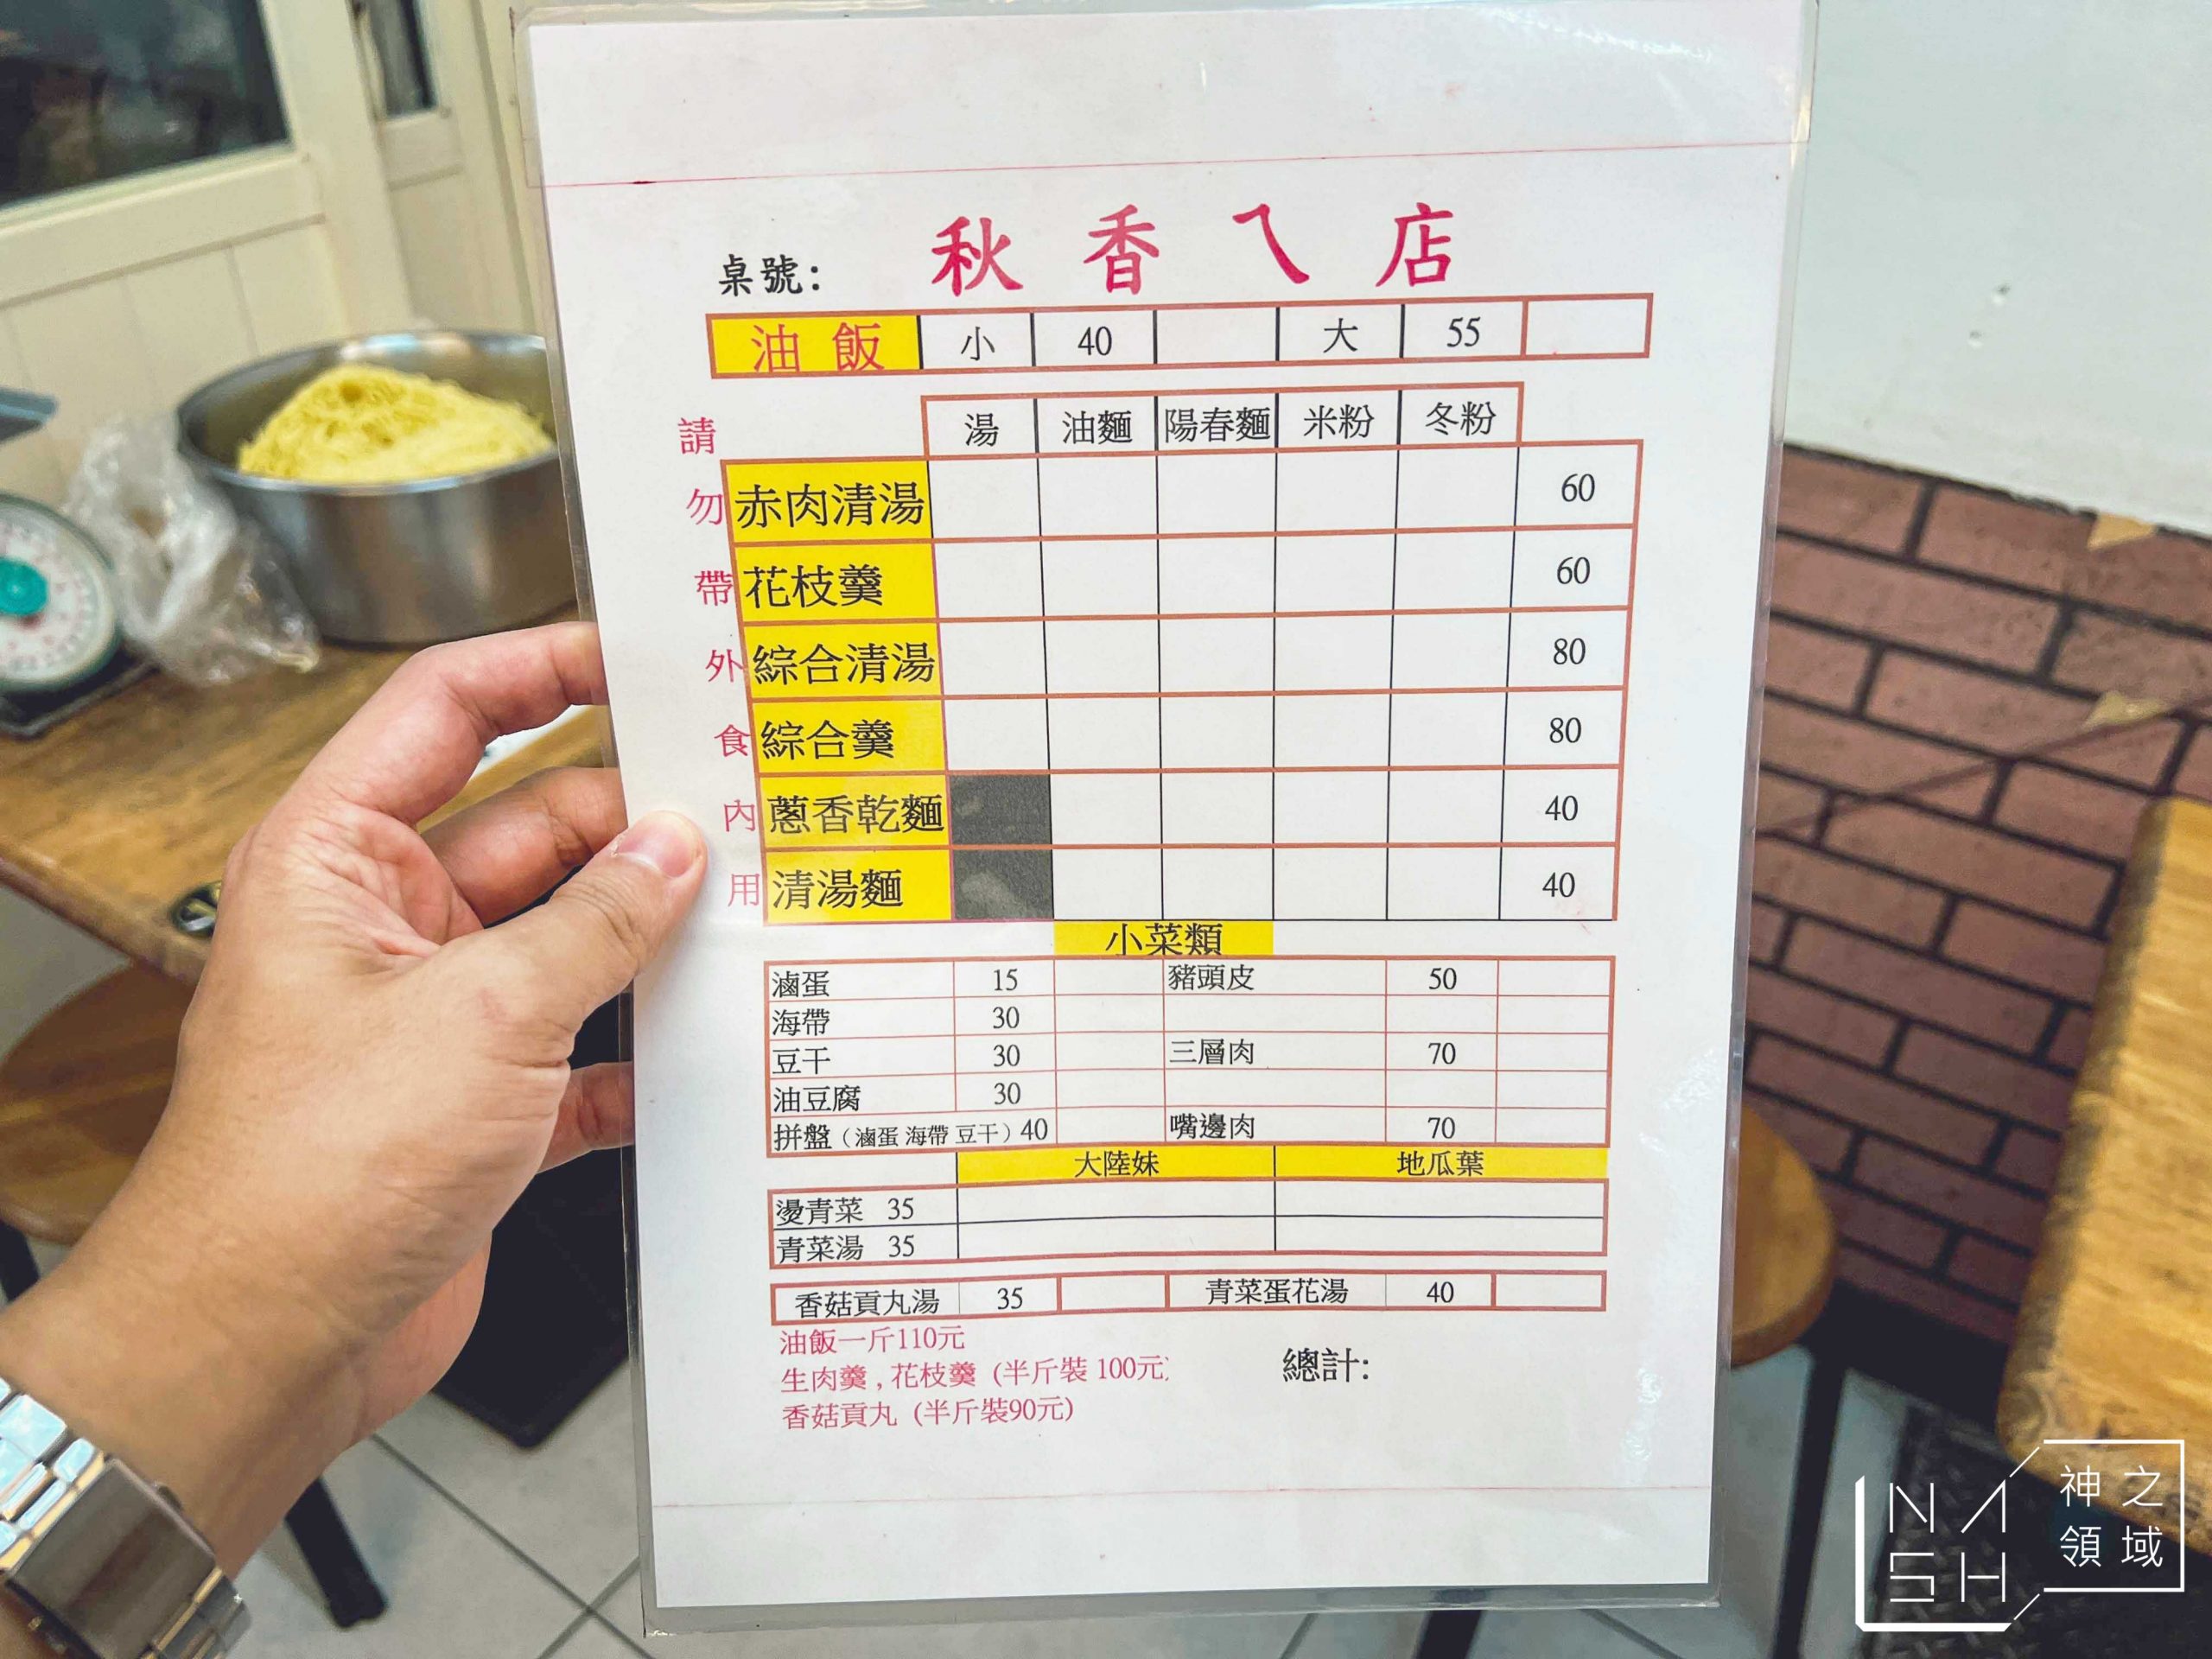 桌號: 秋香ㄟ店
油飯 小 40 大 55
湯 油麵 陽春麵 米粉 冬粉
請勿帶外食內用
赤肉清湯 60
花枝羹 60
綜合清湯 80
綜合羹 80
蔥香乾麵 40
清湯麵 40
小菜類
滷蛋 15 豬頭皮 50
海帶 30
豆干 30 三層肉 70
油豆腐 30
拼盤（滷蛋 海帶 豆干）40 嘴邊肉 70
大陸妹 地瓜葉
燙青菜 35
青菜湯 35
香菇貢丸湯 35 青菜蛋花湯 40
油飯一斤110元
生肉羹,花枝羹 (半斤裝 100元)
總計:
香菇貢丸 (半斤裝90元)
NASH
神之領域